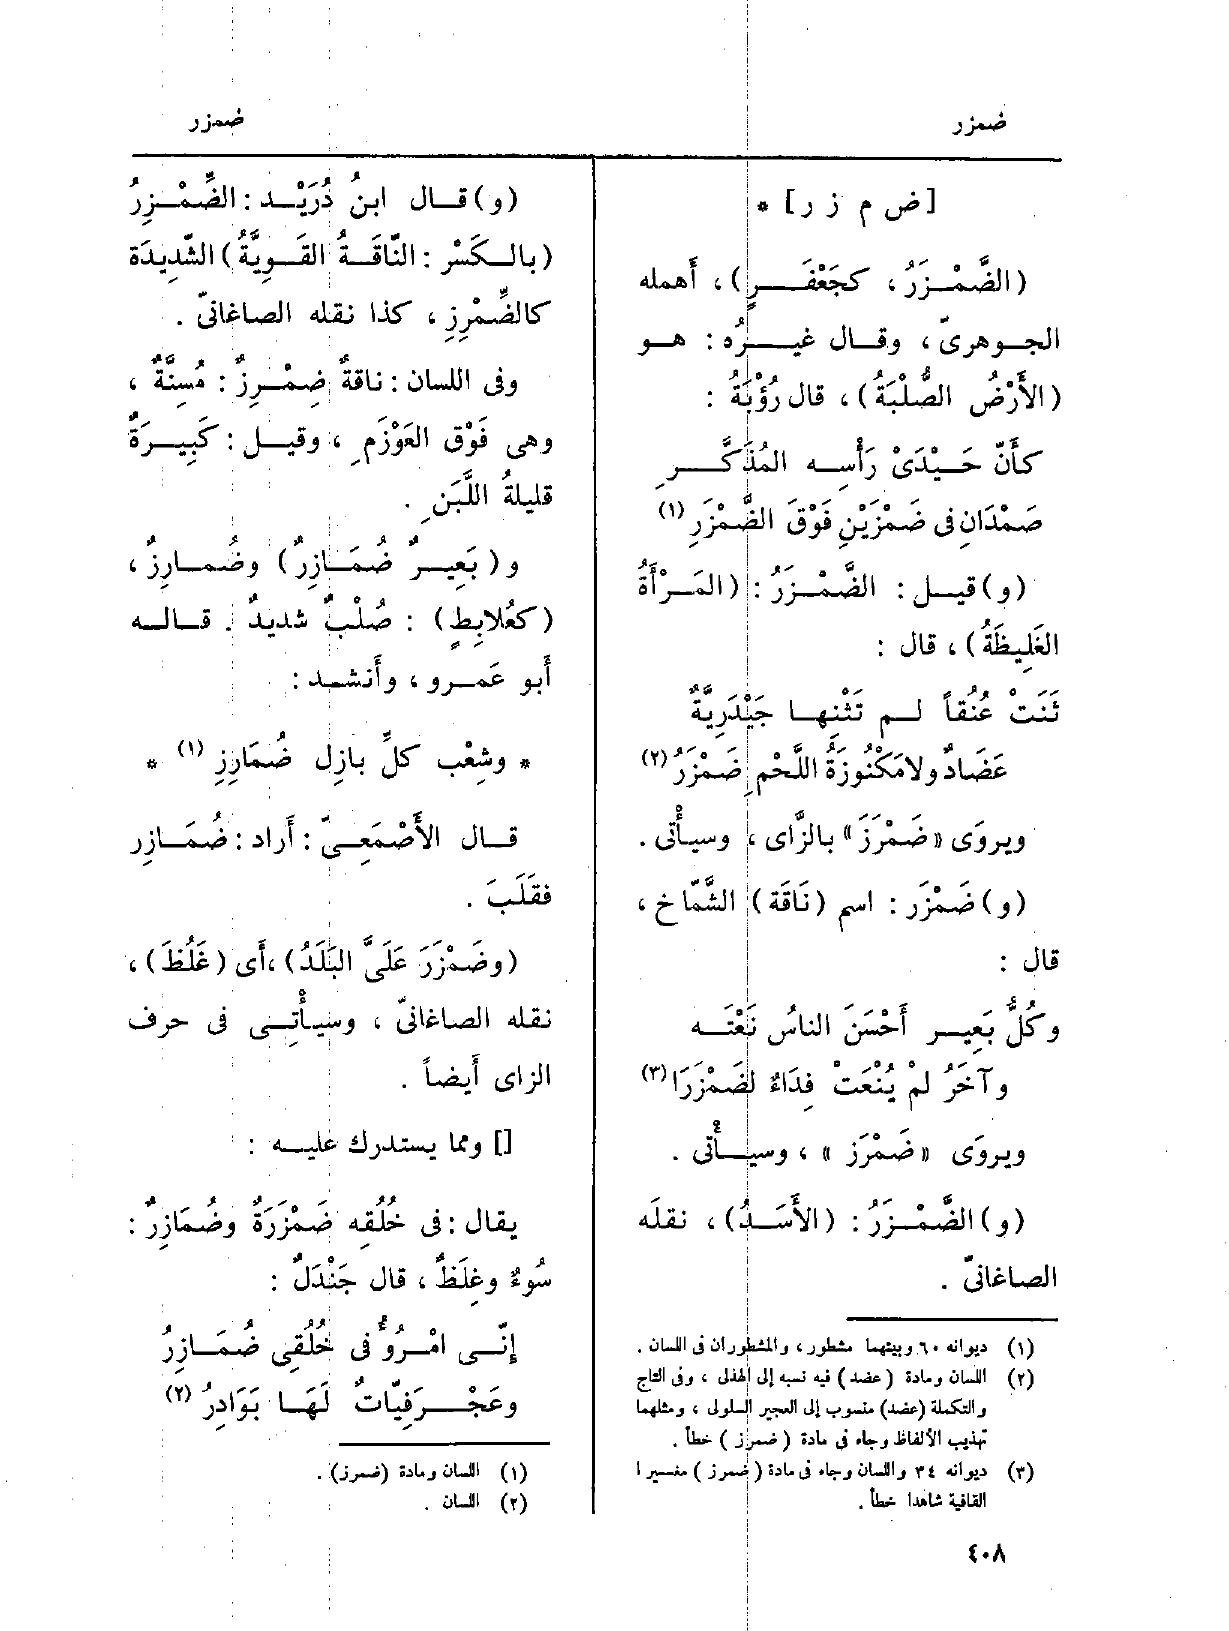 ضمزر
ضمزر
[ض م ز ر] *
(الضَّمْزَرُ ، كجَعْفَرٍ) ، أهمله
الجوهرىّ ، وقال غيرُه : هو
(الأَرْضُ الصُّلْبَةُ) ، قال رُؤْبَةُ :
كأَنّ حَيْدَىْ رَأْسِه المُذَكَّرِ
صَمْدَانِ فى ضَمْزَيْنِ فَوْقَ الضَّمْزَرِ (١)
(و) قيل : الضَّمْزَرُ : (المَرْأَةُ
الغَلِيظَةُ) ، قال :
ثَنَتْ عُنُقاً لم تَثْنِها جَيْدَرِيَّةٌ
عَضَادٌ ولا مَكْنُوزَةُ اللَّحْمِ ضَمْزَرُ (٢)
ويروَى «ضَمْرَزَ» بالزَّاى ، وسيأْتى .
(و) ضَمْزَر : اسم (نَاقَة) الشَّمّاخ ،
قال :
وكُلُّ بَعِير أَحْسَنَ الناسُ نَعْتَه
وآخَرُ لمْ يُنْعَتْ فِدَاءٌ لضَمْزَرَا (٣)
ويروَى «ضَمْرَز» ، وسيأْتى .
(و) الضَّمْزَرُ : (الأَسَدُ) ، نقلَه
الصاغانىّ .
(١) ديوانه ٦٠ وبينهما مشطور ، والمشطوران فى اللسان .
(٢) اللسان ومادة (عضد) فيه نسبه إلى الهذلى ، وفى التاج
والتكملة (عضد) منسوب إلى العجير السلولى ، ومثلهما
تهذيب الألفاظ وجاء فى مادة (ضمرز) خطأ .
(٣) ديوانه ٣٤ واللسان وجاء فى مادة (ضمرز) مغير ا
القافية شاهدا خطأ .
(و) قال ابنُ دُرَيْد : الضِّمْزِرُ
(بالكَسْر : النّاقَةُ القَوِيَّةُ) الشَّدِيدَة
كالضِّمْرِزِ ، كذا نقله الصاغانىّ .
وفى اللسان : ناقةٌ ضِمْرِزٌ : مُسِنَّةٌ ،
وهى فَوْق العَوْزَمِ ، وقيل : كَبِيرَةٌ
قليلةُ اللَّبَنِ .
و (بَعِيرٌ ضُمَازِرٌ) وضُمارِزٌ ،
(كعُلابِطٍ) : صُلْبٌ شديدٌ . قاله
أبو عَمرو ، وأَنشد :
* وشِعْب كلِّ بازِل ضُمَارِزِ (١) *
قال الأَصْمَعِىّ : أَراد : ضُمَازِر
فقَلَبَ .
(وضَمْزَرَ عَلَىَّ البَلَدُ) ، أَى (غَلُظَ) ،
نقله الصاغانىّ ، وسيأْتى فى حرف
الزاى أَيضاً .
[] ومما يستدرك عليه :
يقال : فى خُلُقِه ضَمْزَرَةٌ وضُمَازِرٌ :
سُوءٌ وغِلَظٌ ، قال جَنْدَلٌ :
إِنِّى امْرُؤٌ فى خُلُقِى ضُمَازِرُ
وعَجْرَفِيّاتٌ لَهَا بَوَادِرُ (٢)
(١) اللسان ومادة (ضمرز) .
(٢) اللسان .
٤٠٨